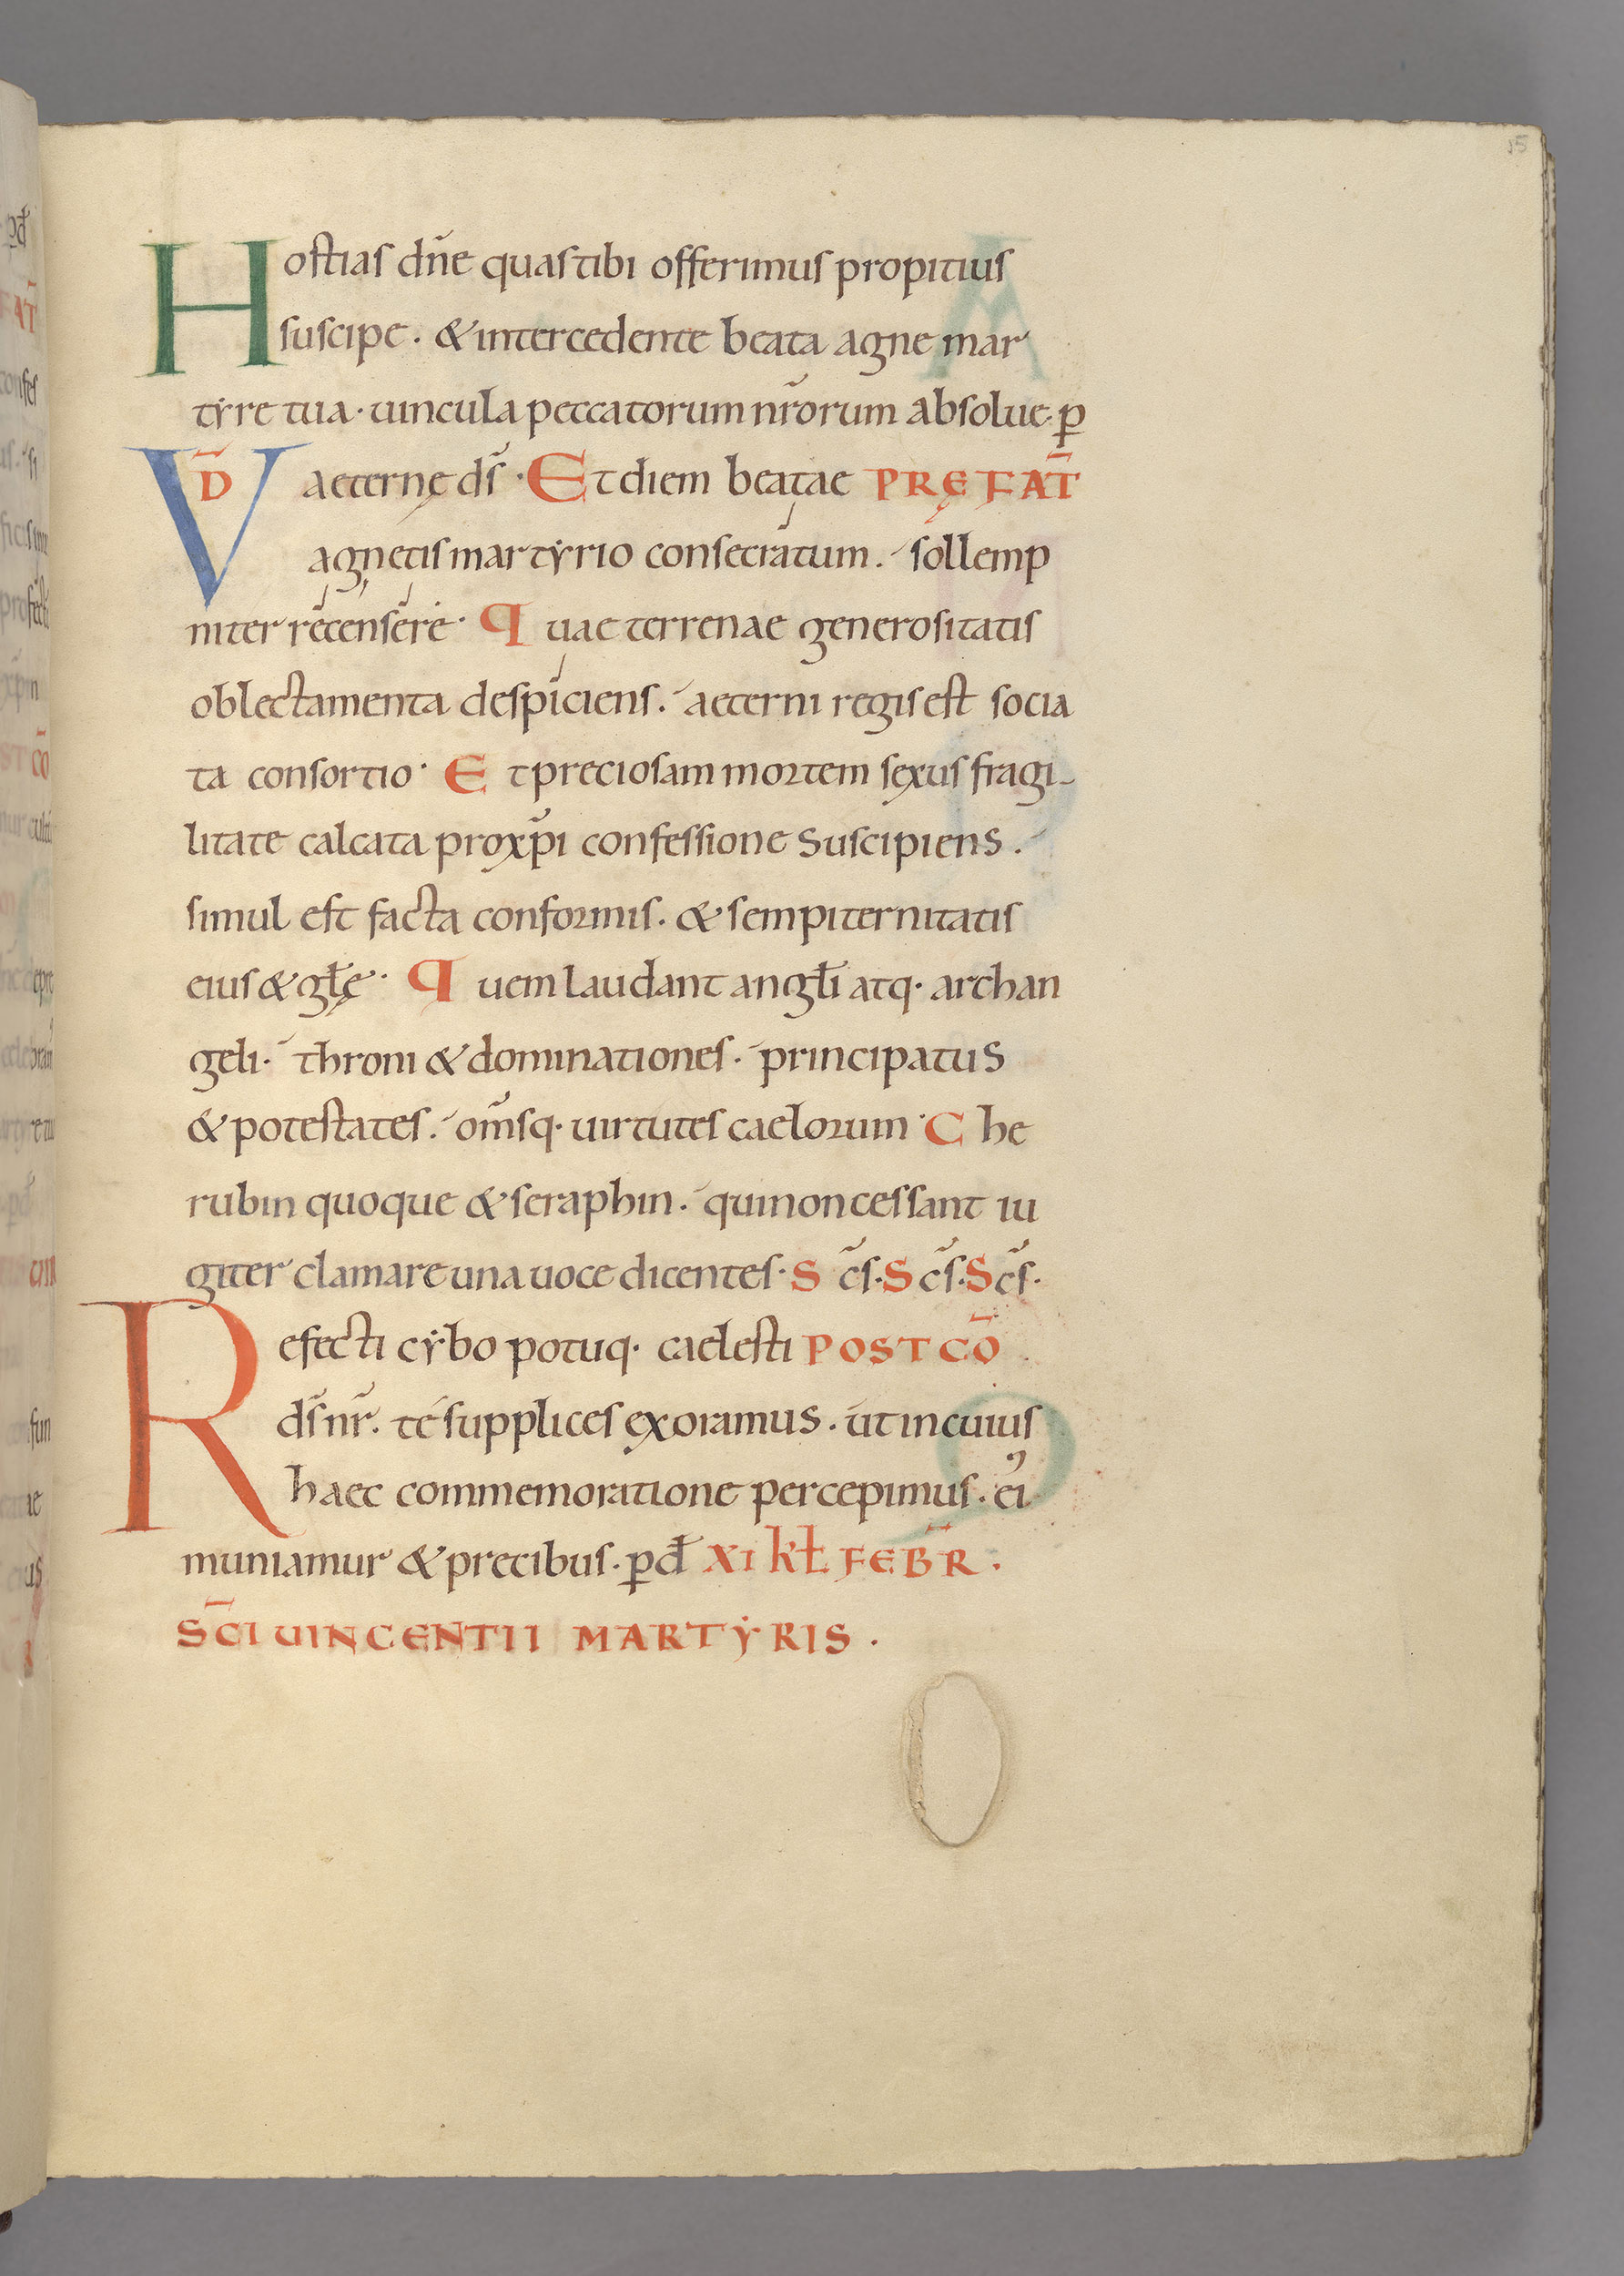 Hostias dn̄e quas tibi offerimus propitius
suscipe . & intercedente beata agne mar
tẏre tua · uincula peccatorum nr̄orum absolue · ꝑ
VD̄ aeternę ds̄ · Et diem beatae PRĘFAT̄
agnetis martẏrio consecratum . sollemp
niter recensere · Quae terrenae generositatis
oblectamenta despiciens . aeterni regis est socia
ta consortio · Et preciosam mortem sexus fragi-
litate calcata pro xp̄i confessione Suscipiens .
simul est facta conformis . & sempiternitatis
eius & gɫę · Quem laudant angɫi atq· archan
geli · throni & dominationes · principatuS
& potestates . om̄sq· uirtutes caelorum · Che
rubin quoque & seraphin . qui non cessant iu
giter clamare una uoce dicentes · Sc̄s · Sc̄s · Sc̄s ·
Refecti cẏbo potuq· caelesti POST CŌ
ds̄ nr̄ . té supplices exoramus . ut in cuius
haec commemoratione percepimus . ei᾽
muniamur & precibus · ꝑ đ XI kɫ FEBR̄ .
SC̄I UINCENTII MARTẎRIS .